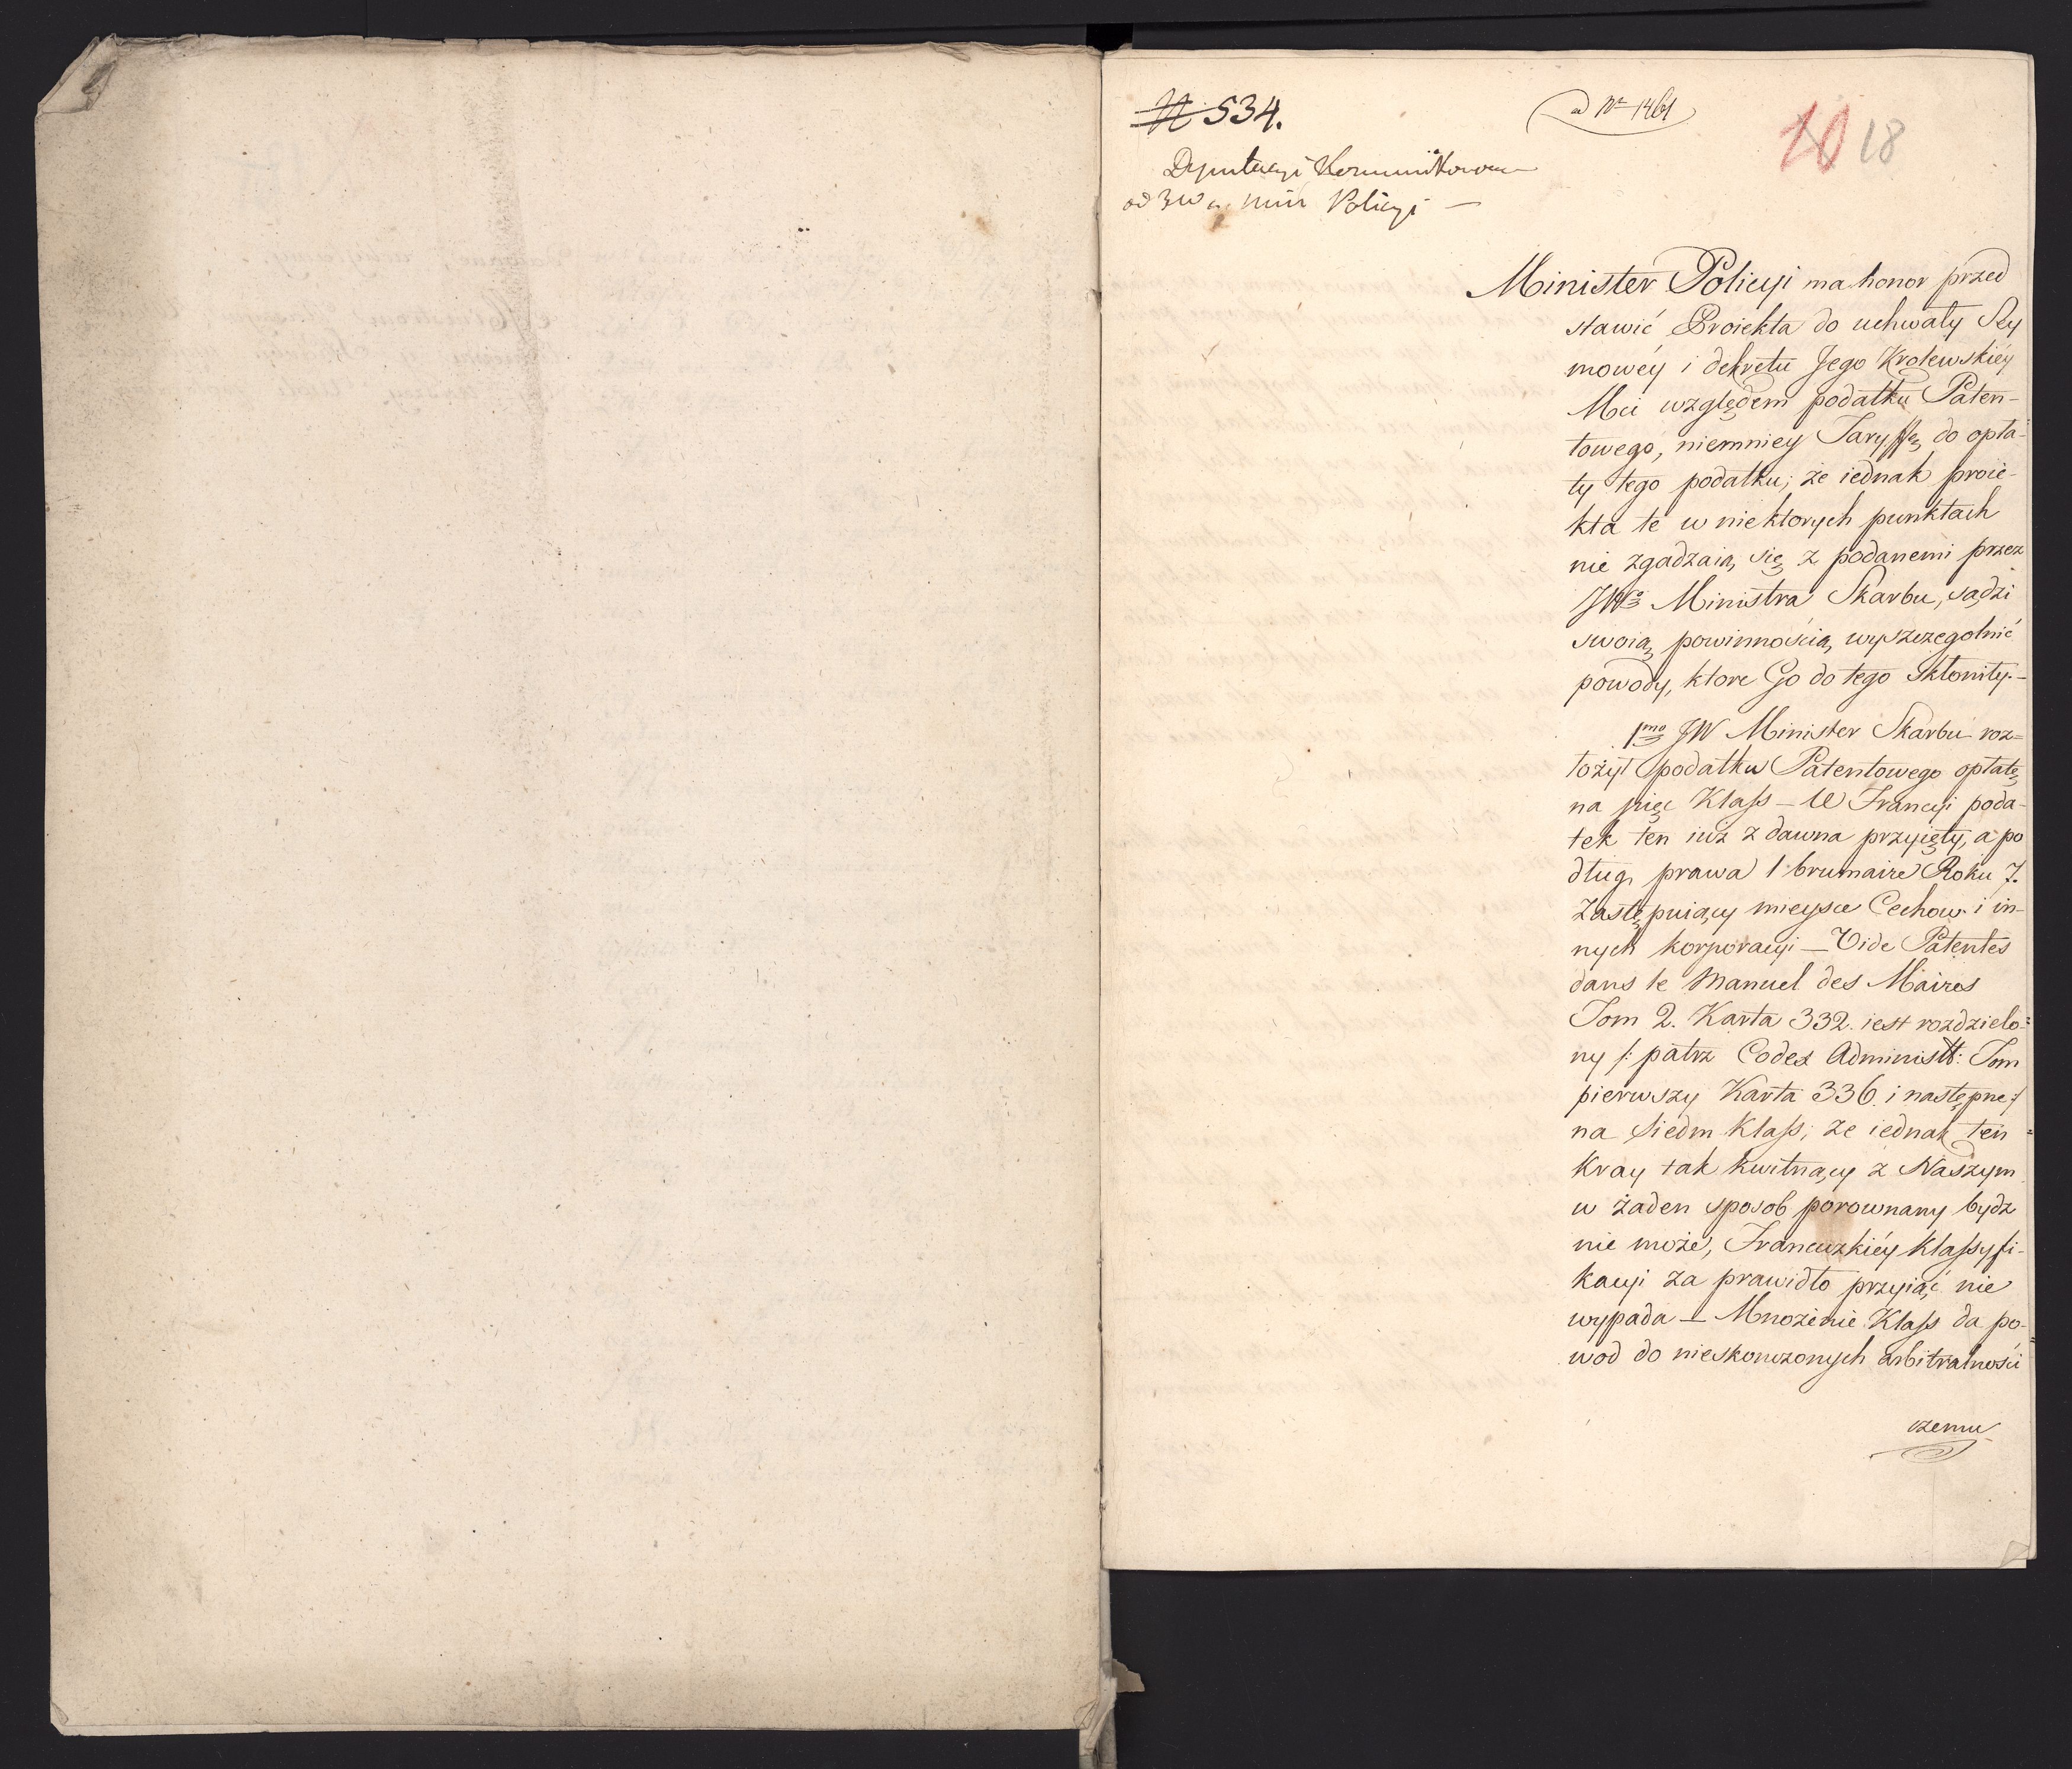 N 534.
ad Nr 1461
10 18
Deputacyi
od JW min Policyi —
Minister Policyi ma honor przed
stawić Proiekta do uchwały Sey
mowéy i dekretu Jego Krolewskiéy
Mci względem podatku Paten-
towego, niemniey Taryffę do opła-
ty tego podatku; że iednak proie-
kta te w niektorych punktach
nie zgadzaią się z podanemi przez
JWo Ministra Skarbu, sądzi
swoią powinnością wyszczegolnić
powody, ktore Go do tego skłoniły.—
1mo JW Minister Skarbu roz=
łożył podatku Patentowego opłatę
na pięć Klass — W Francyi poda-
tek ten iuż z dawna przyięty, a po
dług prawa 1 brumaire Roku 7.
Zastępuiący mieysce Cechow i in-
nych korporacyi — Vide Patentes
dans le Manuel des Maires
Tom 2. Karta 332. iest rozdzielo=
ny /: patrz Codex Administr: Tom
pierwszy Karta 336. i następne :/
na siedm Klass; że iednak ten
Kray tak kwitnący z Naszym
w żaden sposob porownany bydz
nie może, Francuzkiéy Klassyfi-
kacyi za prawidło przyiąć nie
wypada — Mnożenie Klass da po-
wod do nieskonczonych arbitralności
czemu